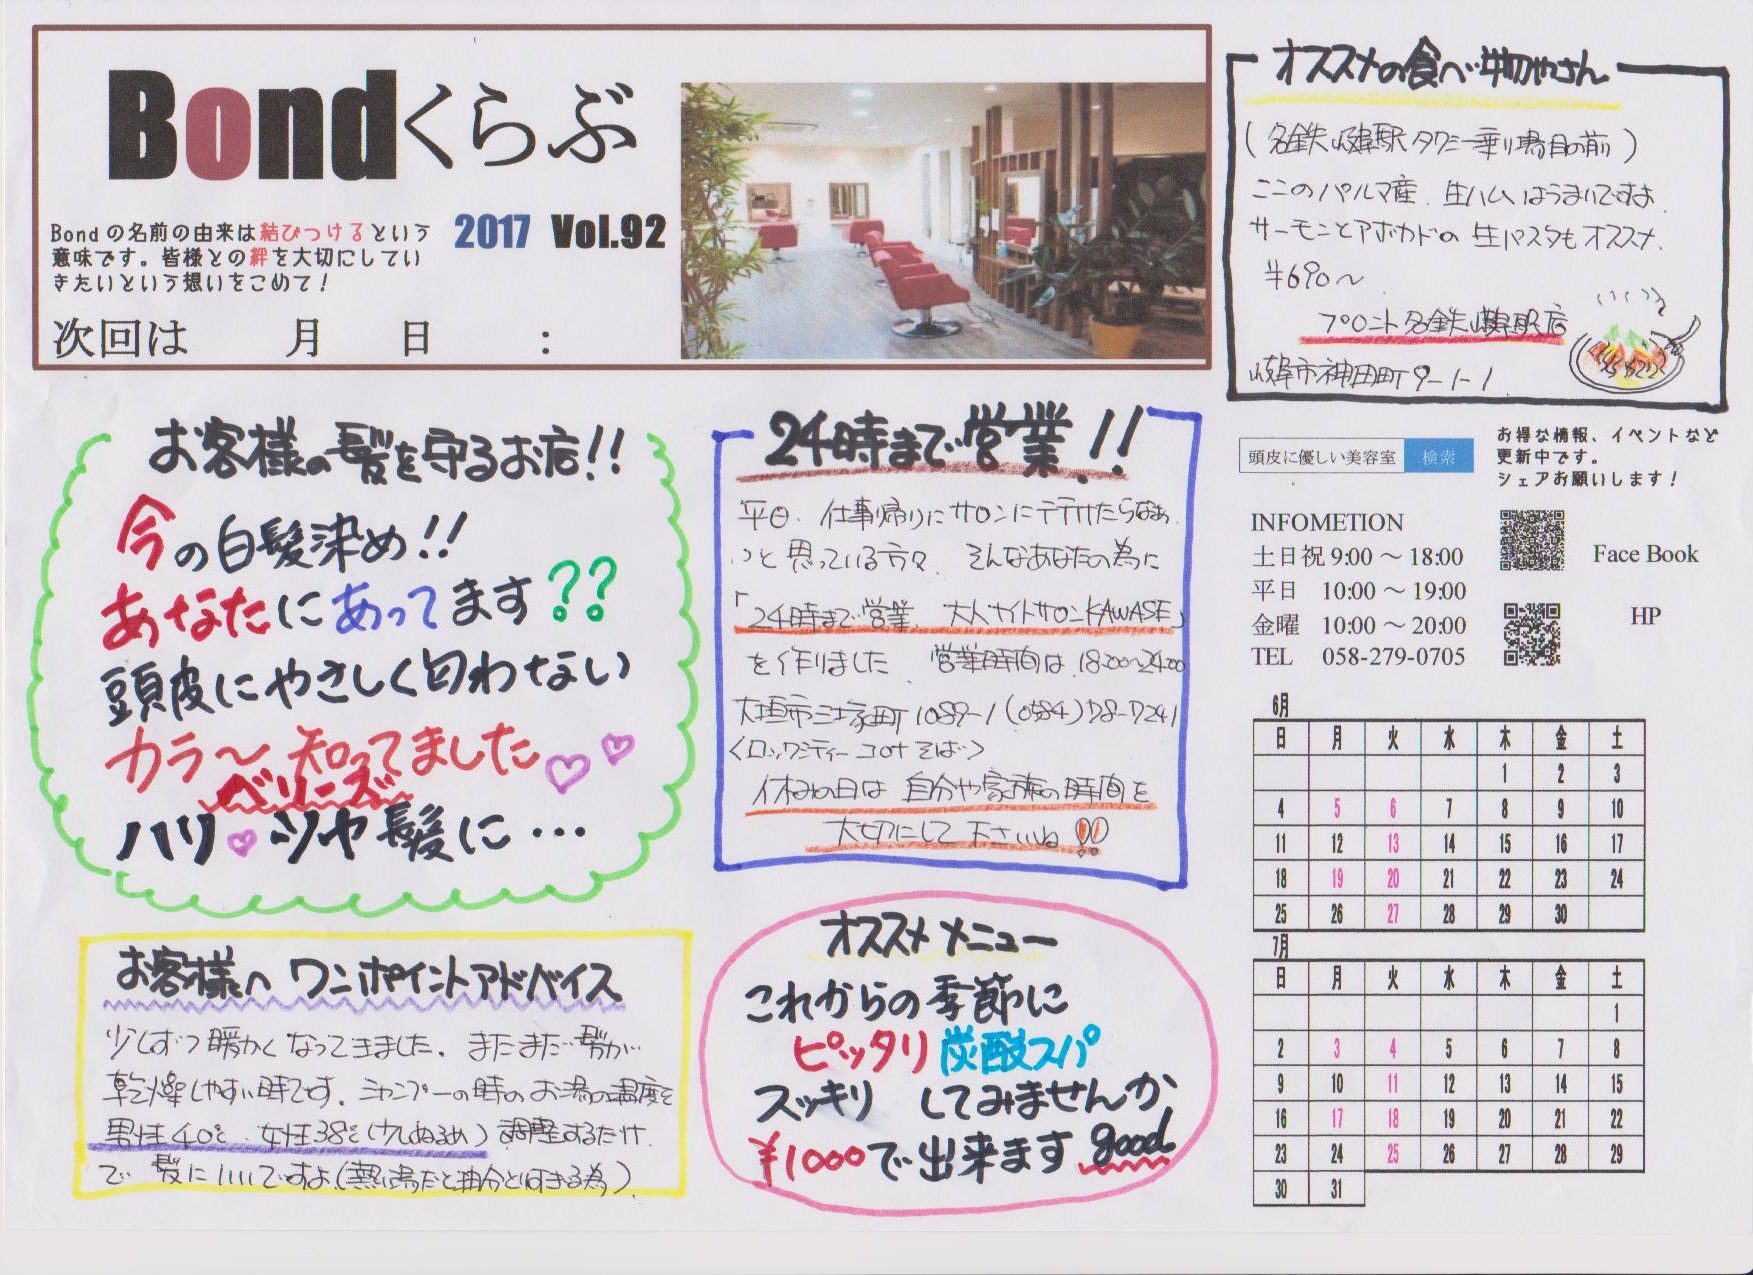 Bondくらぶ
Bondの名前の由来は結びつけるという
意味です。皆様との絆を大切にしてい
きたいという想いをこめて！
2017 Vol.92
次回は　　月　　日　　：
オススメの食べ物やさん
(名鉄岐阜駅タクシー乗り場目の前)
ここのパルマ産、生ハムはうまいですよ。
サーモンとアボカドの生パスタもオススメ。
¥690〜
プロント名鉄岐阜駅店
岐阜市神田町9-1-1
お客様の髪を守るお店!!
今の白髪染め!!
あなたにあってます??
頭皮にやさしく匂わない
カラ〜知ってました
ベリーズ
ハリ ツヤ髪に…
24時まで営業!!
平日、仕事帰りにサロンに
っと思っている方々、そんなあなたの為に
「24時まで営業、大人ナイトサロンKAWASE」
を作りました 営業時間は18:00〜24:00
大垣市三塚町1089-1(0584)78-7241
<ロックシティーコロナそば>
休みの日は自分や家族の時間を
大切にして下さいね!!
頭皮に優しい美容室 検索
お得な情報、イベントなど
更新中です。
シェアお願いします！
INFOMETION
土日祝 9:00 〜 18:00
平日 10:00 〜 19:00
金曜 10:00 〜 20:00
TEL 058-279-0705
Face Book
HP
6月
日 月 火 水 木 金 土
1 2 3
4 5 6 7 8 9 10
11 12 13 14 15 16 17
18 19 20 21 22 23 24
25 26 27 28 29 30
7月
日 月 火 水 木 金 土
1
2 3 4 5 6 7 8
9 10 11 12 13 14 15
16 17 18 19 20 21 22
23 24 25 26 27 28 29
30 31
お客様へ ワンポイントアドバイス
少しずつ暖かくなってきました。まだまだ髪が
乾燥しやすい時です。シャンプーの時のお湯の温度を
男性40℃、女性38℃(少しぬるめ)調整するだけ
で髪にいいですよ(熱い湯だと油分とりすぎる為)
オススメメニュー
これからの季節に
ピッタリ炭酸スパ
スッキリ してみませんか
¥1000で出来ます good